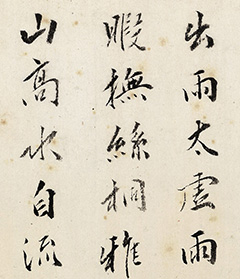 出雨太虚雨
暇撫絲桐雅
山高水自流